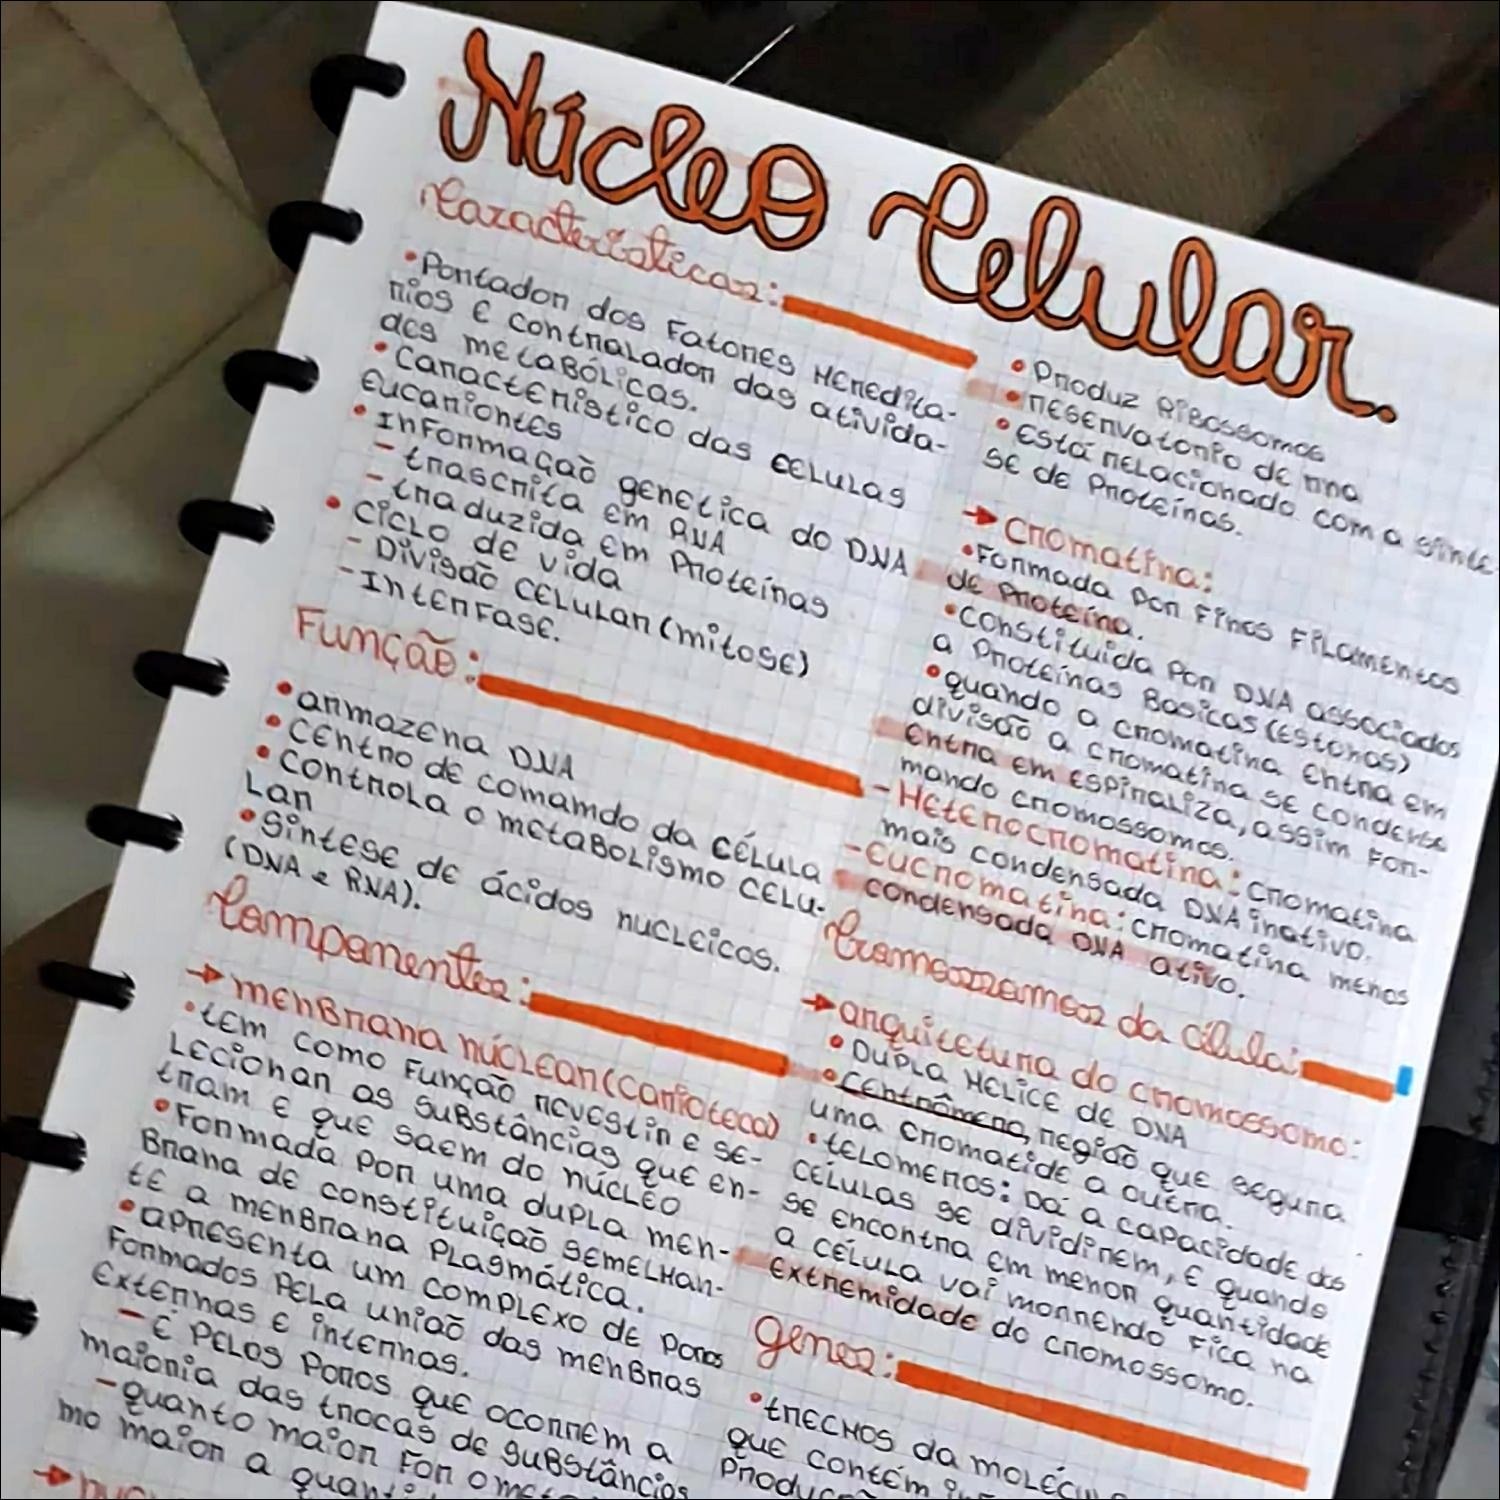 Núcleo Celular.
Características:
•Portador dos Fatores Heredita-
rios e contralador das ativida-
des metaBólicas.
•Característico das celulas
eucariontes
•Informação genetica do DNA
-trascrita em RNA
-traduzida em Proteínas
•Ciclo de vida
-Divisão celular (mitose)
-Interfase.
Função:
•armazena DNA
•Centro de comamdo da célula
•Controla o metaBolismo celu-
lar
•Síntese de ácidos nucleicos.
(DNA e RNA).
Componentes:
→menBrana núclear (carioteca)
•tem como Função revestir e se-
lecionar as suBstâncias que en-
tram e que saem do núcleo
•Formada por uma dupla men-
Brana de constituição semelhan-
te a menBrana Plasmática.
•apresenta um complexo de Poros
Formados Pela união das menBras
externas e internas.
-é Pelos Poros que ocorrem a
maioria das trocas de suBstâncias
-quanto maior For o
mo maior a
•Produz RiBossomos
•resenvatorio de rna
•está relacionado com a sinte
se de Proteínas.
→Cromatina:
•Formada por Finos Filamentos
de Proteína.
•Constituída por DNA associados
a Proteínas Basicas (estonas)
•quando a cromatina entra em
divisão a cromatina se condensa
entra em espiraliza, assim For-
mando cromossomos.
-Heterocromatina: cromatina
mais condensada DNA inativo.
-eucromatina: cromatina menos
condensada DNA ativo.
Cromossomos da célula:
→arquitetura do cromossomo:
•Dupla Helice de DNA
•Centrômero, região que segura
uma cromatide a outra.
•telomeros: Dá a capacidade das
células se dividirem, e quando
se encontra em menor quantidade
a célula vai morrendo Fica na
extremidade do cromossomo.
genes:
•trechos da
que contém